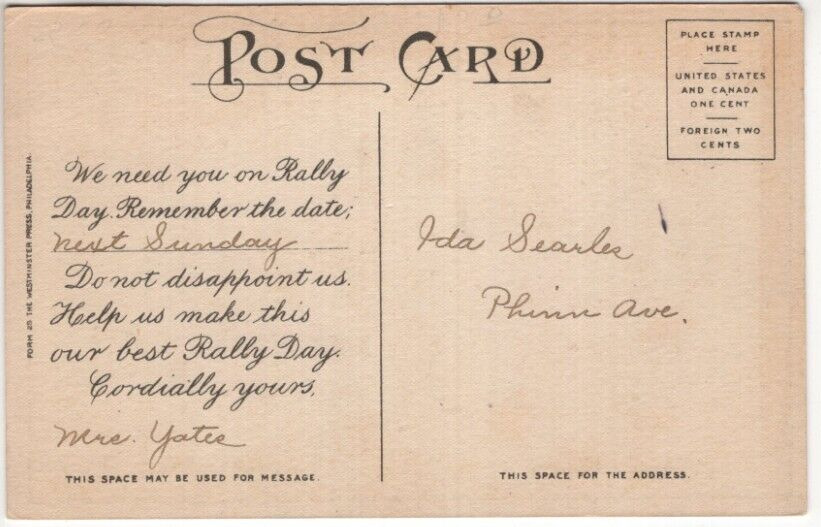 POST CARD
PLACE STAMP
HERE
UNITED STATES
AND CANADA
ONE CENT
FOREIGN TWO
CENTS
FORM 28 THE WESTMINSTER PRESS, PHILADELPHIA.
We need you on Rally
Day. Remember the date;
next Sunday
Do not disappoint us.
Help us make this
our best Rally Day.
Cordially yours,
Mrs. Yates
THIS SPACE MAY BE USED FOR MESSAGE.
Ida Searles
Phinn Ave.
THIS SPACE FOR THE ADDRESS.